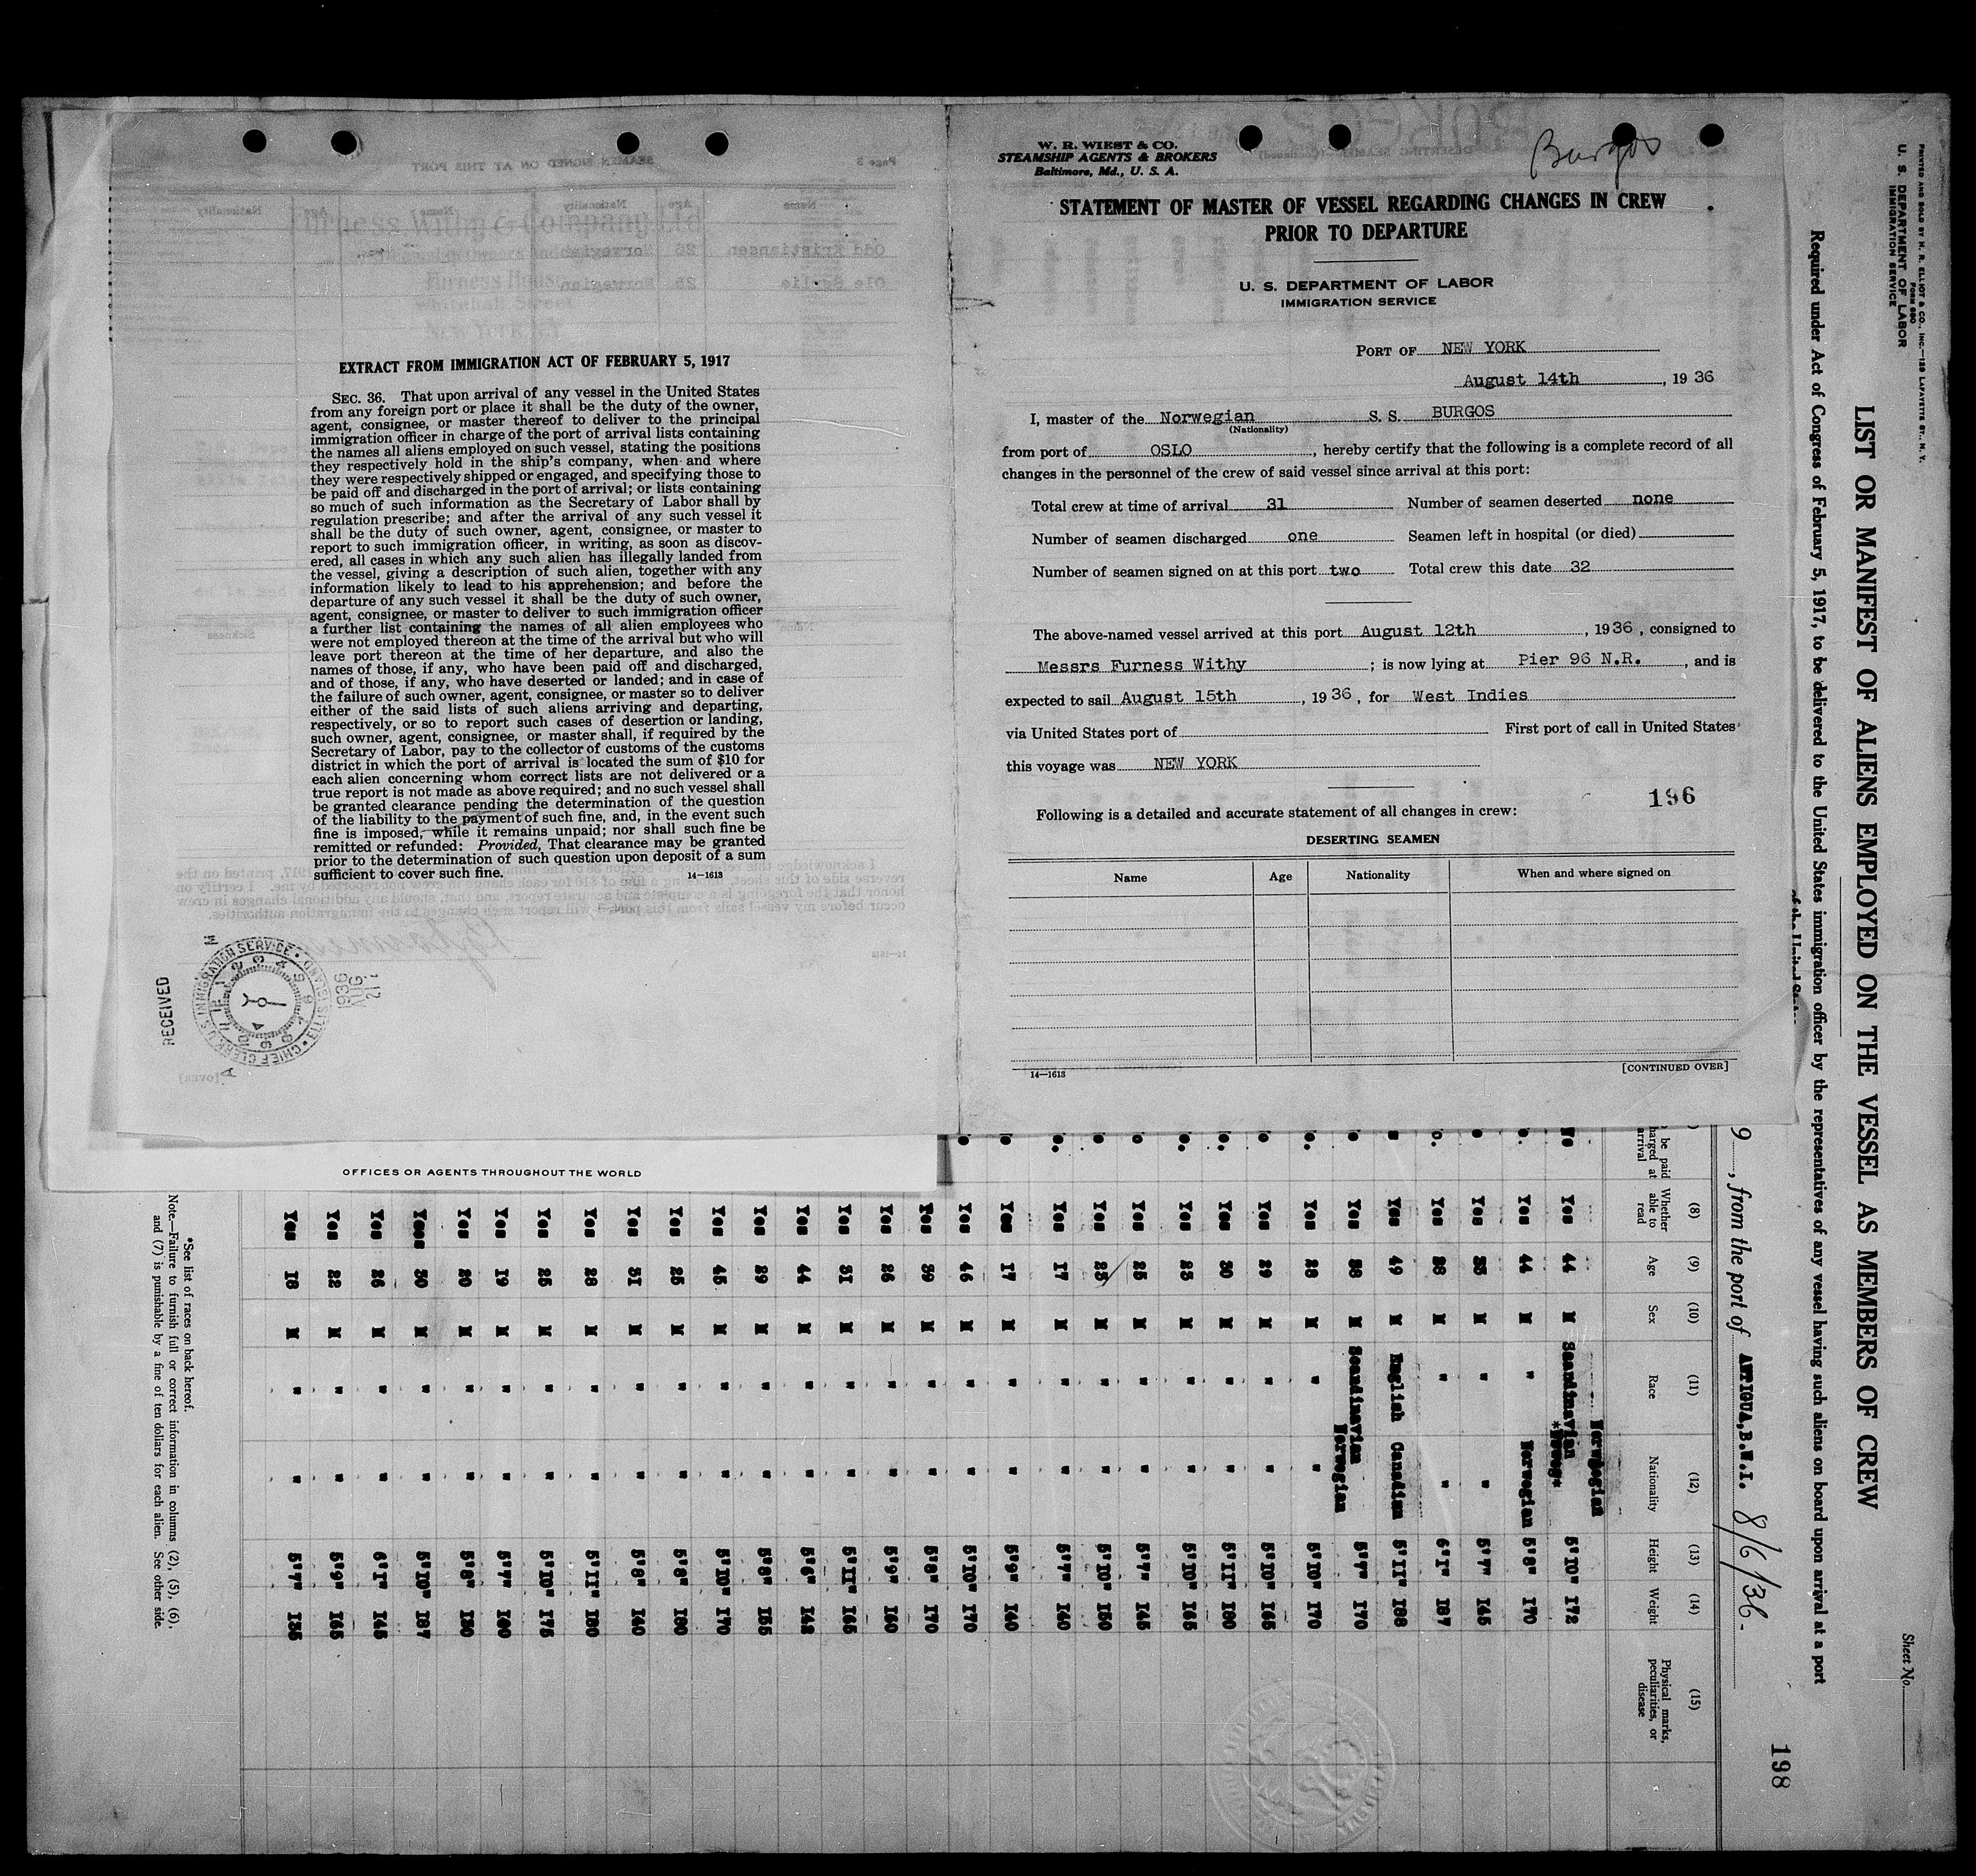 EXTRACT FROM IMMIGRATION ACT OF FEBRUARY 5, 1917
SEC. 36. That upon arrival of any vessel in the United States
from any foreign port or place it shall be the duty of the owner,
agent, consignee, or master thereof to deliver to the principal
immigration officer in charge of the port of arrival lists containing
the names all aliens employed on such vessel, stating the positions
they respectively hold in the ship's company, when and where
they were respectively shipped or engaged, and specifying those to
be paid off and discharged in the port of arrival; or lists containing
so much of such information as the Secretary of Labor shall by
regulation prescribe; and after the arrival of any such vessel it
shall be the duty of such owner, agent, consignee, or master to
report to such immigration officer, in writing, as soon as discov-
ered, all cases in which any such alien has illegally landed from
the vessel, giving a description of such alien, together with any
information likely to lead to his apprehension; and before the
departure of any such vessel it shall be the duty of such owner,
agent, consignee, or master to deliver to such immigration officer
a further list containing the names of all alien employees who
were not employed thereon at the time of the arrival but who will
leave port thereon at the time of her departure, and also the
names of those, if any, who have been paid off and discharged,
and of those, if any, who have deserted or landed; and in case of
the failure of such owner, agent, consignee, or master so to deliver
either of the said lists of such aliens arriving and departing,
respectively, or so to report such cases of desertion or landing,
such owner, agent, consignee, or master shall, if required by the
Secretary of Labor, pay to the collector of customs of the customs
district in which the port of arrival is located the sum of $10 for
each alien concerning whom correct lists are not delivered or a
true report is not made as above required; and no such vessel shall
be granted clearance pending the determination of the question
of the liability to the payment of such fine, and, in the event such
fine is imposed, while it remains unpaid; nor shall such fine be
remitted or refunded: Provided, That clearance may be granted
prior to the determination of such question upon deposit of a sum
sufficient to cover such fine. 14—1613
RECEIVED
CHIEF CLERK U.S. IMMIGRATION SERVICE ELLIS ISLAND
1936
AUG
21
OFFICES OR AGENTS THROUGHOUT THE WORLD
W. R. WIEST & CO.
STEAMSHIP AGENTS & BROKERS
Baltimore, Md., U. S. A.
Burgos
STATEMENT OF MASTER OF VESSEL REGARDING CHANGES IN CREW
PRIOR TO DEPARTURE
U. S. DEPARTMENT OF LABOR
IMMIGRATION SERVICE
PORT OF NEW YORK
August 14th, 1936
I, master of the Norwegian S. S. BURGOS
(Nationality)
from port of OSLO, hereby certify that the following is a complete record of all
changes in the personnel of the crew of said vessel since arrival at this port:
Total crew at time of arrival 31 Number of seamen deserted none
Number of seamen discharged one Seamen left in hospital (or died)
Number of seamen signed on at this port two Total crew this date 32
The above-named vessel arrived at this port August 12th, 1936, consigned to
Messrs Furness Withy; is now lying at Pier 96 N.R., and is
expected to sail August 15th, 1936, for West Indies
via United States port of First port of call in United States
this voyage was NEW YORK
196
Following is a detailed and accurate statement of all changes in crew:
DESERTING SEAMEN
Name Age Nationality When and where signed on
14—1613 [CONTINUED OVER]
PRINTED AND SOLD BY H. R. ELLIOT & CO., INC.—129 LAFAYETTE ST., N. Y.
FORM 680
U. S. DEPARTMENT OF LABOR
IMMIGRATION SERVICE
Sheet No.
LIST OR MANIFEST OF ALIENS EMPLOYED ON THE VESSEL AS MEMBERS OF CREW
Required under Act of Congress of February 5, 1917, to be delivered to the United States immigration officer by the representatives of any vessel having such aliens on board upon arrival at a port
of the United
198
9, from the port of ANTIGUA,B.W.I. 8/6/36-
(8) (9) (10) (11) (12) (13) (14) (15)
be paid
arrival
Whether able to read Age Sex Race Nationality Height Weight Physical marks, peculiarities, or disease
Norwegian
No Yes 44 M Scandinavian 5'10" 172
Yes 44 M " Norwegian 5'8" 170
Yes M " " 5'7" 145
Yes M " " 6'1" 187
Yes 49 M English Canadian 5'11" 188
Yes M Scandinavian Norwegian 5'7" 170
Yes 28 M " " 5'10" 170
Yes 29 M " " 5'10" 165
Yes 30 M " " 5'11" 180
Yes 23 M " " 5'10" 165
Yes 25 M " " 5'7" 145
Yes 23 M " " 5'10" 150
Yes 17 M " " 5'7" 140
Yes 17 M " " 5'9" 140
Yes 46 M " " 5'10" 170
Yes 39 M " " 5'8" 170
Yes 26 M " " 5'9" 160
Yes 31 M " " 5'11" 165
Yes 44 M " " 5'6" 142
Yes 29 M " " 5'8" 155
Yes 45 M " " 5'10" 170
Yes 25 M " " 5'8" 180
Yes 31 M " " 5'8" 140
Yes 28 M " " 5'11" 180
Yes 25 M " " 5'10" 175
Yes 19 M " " 5'7" 160
Yes 20 M " " 5'8" 130
Yes 30 M " " 5'10" 187
Yes 26 M " " 6'1" 145
Yes 22 M " " 5'9" 165
Yes 18 M " " 5'7" 135
*See list of races on back hereof.
Note.—Failure to furnish full or correct information in columns (2), (5), (6),
and (7) is punishable by a fine of ten dollars for each alien. See other side.